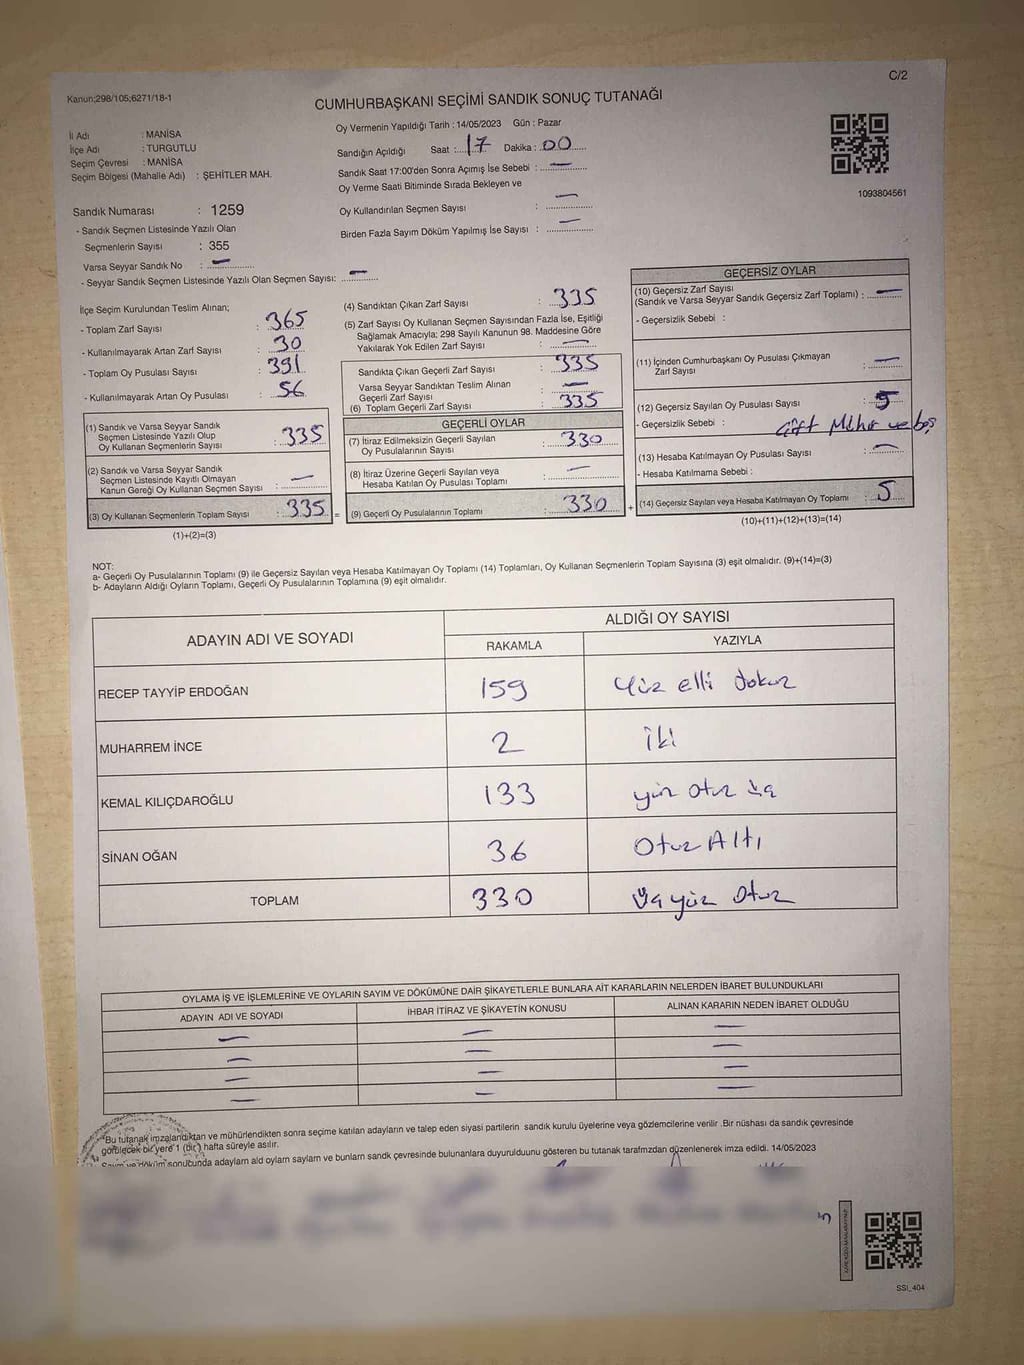 C/2
Kanun;298/105;6271/18-1
CUMHURBAŞKANI SEÇİMİ SANDIK SONUÇ TUTANAĞI
İl Adı : MANİSA
İlçe Adı : TURGUTLU
Seçim Çevresi : MANİSA
Seçim Bölgesi (Mahalle Adı) : ŞEHİTLER MAH.
Sandık Numarası : 1259
- Sandık Seçmen Listesinde Yazılı Olan
Seçmenlerin Sayısı : 355
Varsa Seyyar Sandık No : —
- Seyyar Sandık Seçmen Listesinde Yazılı Olan Seçmen Sayısı: —
Oy Vermenin Yapıldığı Tarih : 14/05/2023 Gün : Pazar
Sandığın Açıldığı Saat : 17 Dakika : 00
Sandık Saat 17:00'den Sonra Açımış İse Sebebi : —
Oy Verme Saati Bitiminde Sırada Bekleyen ve
Oy Kullandırılan Seçmen Sayısı : —
Birden Fazla Sayım Döküm Yapılmış İse Sayısı : —
1093804561
İlçe Seçim Kurulundan Teslim Alınan;
- Toplam Zarf Sayısı : 365
- Kullanılmayarak Artan Zarf Sayısı : 30
- Toplam Oy Pusulası Sayısı : 391
- Kullanılmayarak Artan Oy Pusulası : 56
(1) Sandık ve Varsa Seyyar Sandık
Seçmen Listesinde Yazılı Olup
Oy Kullanan Seçmenlerin Sayısı : 335
(2) Sandık ve Varsa Seyyar Sandık
Seçmen Listesinde Kayıtlı Olmayan
Kanun Gereği Oy Kullanan Seçmen Sayısı : —
(3) Oy Kullanan Seçmenlerin Toplam Sayısı : 335 =
(1)+(2)=(3)
(4) Sandıktan Çıkan Zarf Sayısı : 335
(5) Zarf Sayısı Oy Kullanan Seçmen Sayısından Fazla İse, Eşitliği
Sağlamak Amacıyla; 298 Sayılı Kanunun 98. Maddesine Göre
Yakılarak Yok Edilen Zarf Sayısı : —
Sandıkta Çıkan Geçerli Zarf Sayısı : 335
Varsa Seyyar Sandıktan Teslim Alınan
Geçerli Zarf Sayısı : —
(6) Toplam Geçerli Zarf Sayısı : 335
GEÇERLİ OYLAR
(7) İtiraz Edilmeksizin Geçerli Sayılan
Oy Pusulalarının Sayısı : 330
(8) İtiraz Üzerine Geçerli Sayılan veya
Hesaba Katılan Oy Pusulası Toplamı : —
(9) Geçerli Oy Pusulalarının Toplamı : 330 +
GEÇERSİZ OYLAR
(10) Geçersiz Zarf Sayısı
(Sandık ve Varsa Seyyar Sandık Geçersiz Zarf Toplamı) : —
- Geçersizlik Sebebi :
(11) İçinden Cumhurbaşkanı Oy Pusulası Çıkmayan
Zarf Sayısı : —
(12) Geçersiz Sayılan Oy Pusulası Sayısı : 5
- Geçersizlik Sebebi : Çift Mühür ve boş
(13) Hesaba Katılmayan Oy Pusulası Sayısı : —
- Hesaba Katılmama Sebebi :
(14) Geçersiz Sayılan veya Hesaba Katılmayan Oy Toplamı : 5
(10)+(11)+(12)+(13)=(14)
NOT:
a- Geçerli Oy Pusulalarının Toplamı (9) ile Geçersiz Sayılan veya Hesaba Katılmayan Oy Toplamı (14) Toplamları, Oy Kullanan Seçmenlerin Toplam Sayısına (3) eşit olmalıdır. (9)+(14)=(3)
b- Adayların Aldığı Oyların Toplamı, Geçerli Oy Pusulalarının Toplamına (9) eşit olmalıdır.
ADAYIN ADI VE SOYADI
ALDIĞI OY SAYISI
RAKAMLA YAZIYLA
RECEP TAYYİP ERDOĞAN 159 Yüz elli dokuz
MUHARREM İNCE 2 İki
KEMAL KILIÇDAROĞLU 133 yüz otuz üç
SİNAN OĞAN 36 Otuz Altı
TOPLAM 330 Üç yüz Otuz
OYLAMA İŞ VE İŞLEMLERİNE VE OYLARIN SAYIM VE DÖKÜMÜNE DAİR ŞİKAYETLERLE BUNLARA AİT KARARLARIN NELERDEN İBARET BULUNDUKLARI
ADAYIN ADI VE SOYADI İHBAR İTİRAZ VE ŞİKAYETİN KONUSU ALINAN KARARIN NEDEN İBARET OLDUĞU
— — —
— — —
— — —
— — —
"Bu tutanak imzalandıktan ve mühürlendikten sonra seçime katılan adayların ve talep eden siyasi partilerin sandık kurulu üyelerine veya gözlemcilerine verilir .Bir nüshası da sandık çevresinde
görülecek bir yere 1 (bir) hafta süreyle asılır.
Sayım ve döküm sonucunda adayların ald oyların sayların ve bunların sandk çevresinde bulunanlara duyurulduunu gösteren bu tutanak tarafmzdan düzenlenerek imza edildi. 14/05/2023
SSI_404